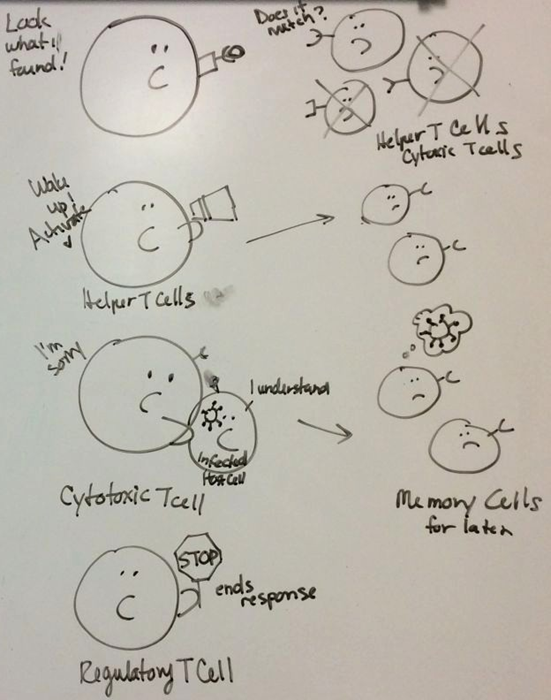 Look
what I
found!
Does it
match?
Helper T Cells
Cytoxic Tcells
Wake
up!
Activate
Helper T Cells
I'm
sorry
I understand
Infected
Host Cell
Cytotoxic Tcell
Memory Cells
for later
STOP
ends
response
Regulatory T Cell